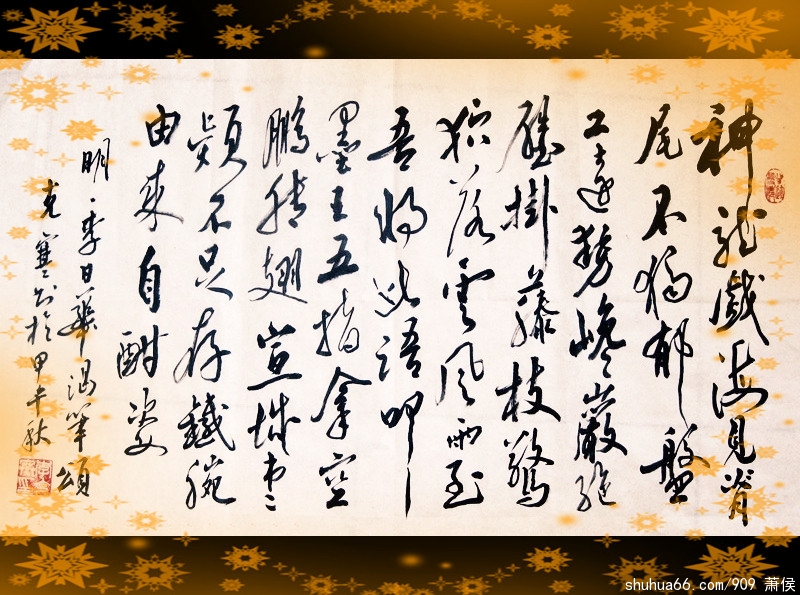 神龍戲海見脊
尾不獨郁盤
工造勢巉巖絕
壁掛藤枝驚
猿落雲風雨至
吾將此語叩
墨王五指拿空
鵬轉翅宣城棗
穎不足存鐵腕
由來自酣姿
明·李日華 渴筆頌
克寒書於甲午秋
shuhua66.com/909 萧侯